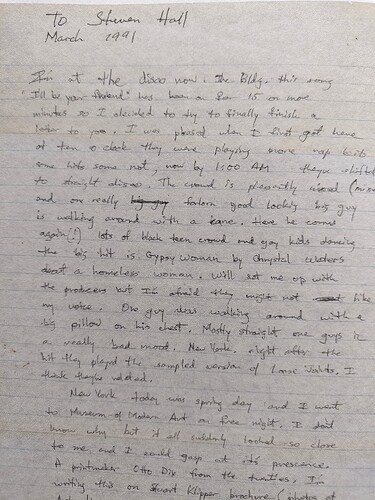 To Steven Hall
March 1991
I'm at the disco now. The Bldg. this song
"I'll be your friend" has been on for 15 or more
minutes so I decided to try to finally finish a
letter to you. I was pleased when I first got here
at ten o clock they were playing more rap hits
some hits some not, now by 1:00 AM they've shifted
to straight disco. The crowd is pleasantly mixed
and one really forlorn good looking big guy
is walking around with a cane. Here he comes
again(!) lots of black teen crowd and gay kids dancing
the big hit is Gypsy woman by Chrystal Waters
about a homeless woman. Will set me up with
the producers but I'm afraid they might not like
my voice. One guy was walking around with a
big pillow on his chest. Mostly straight one guys in
a really bad mood. New York. alright after the
hit they played the sampled version of Loose Joints. I
think they're related.
New York today was spring day and I went
to Museum of Modern Art on free night. I don't
know why but it all suddenly looked so close
to me and I could gasp at its prescence.
A printmaker Otto Dix from the twenties. I'm
writing this on Stuart Klipper brochure (photos of